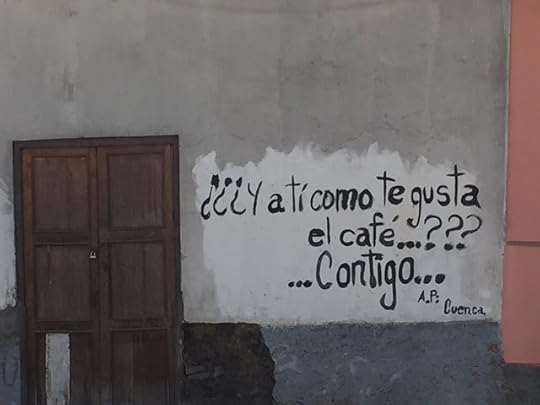 ¿¿¿Y a tí como te gusta
el café...???
...Contigo...
A.P:
Cuenca